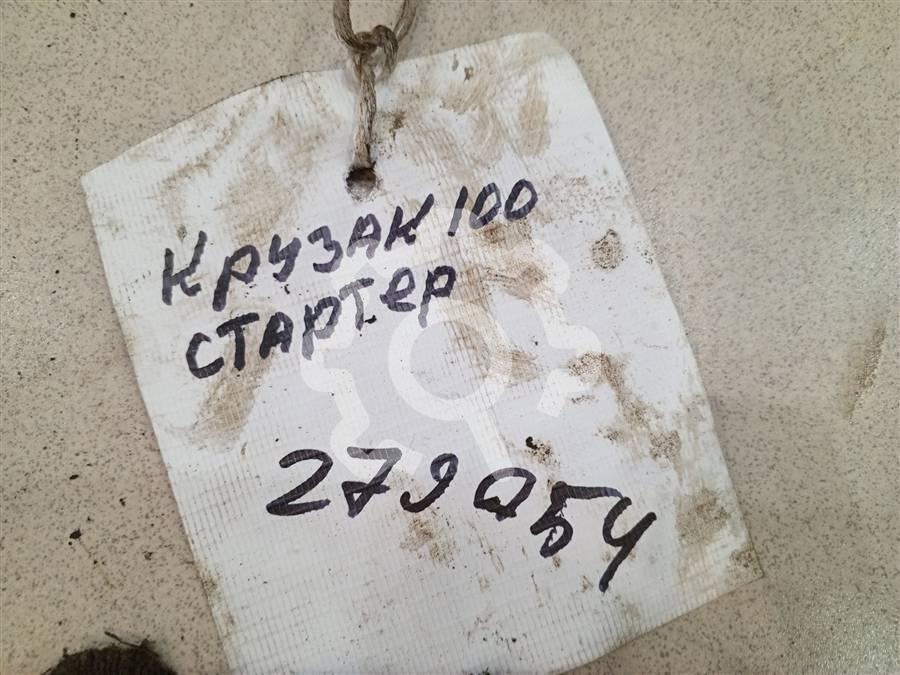 Крузак 100
стартер
279054